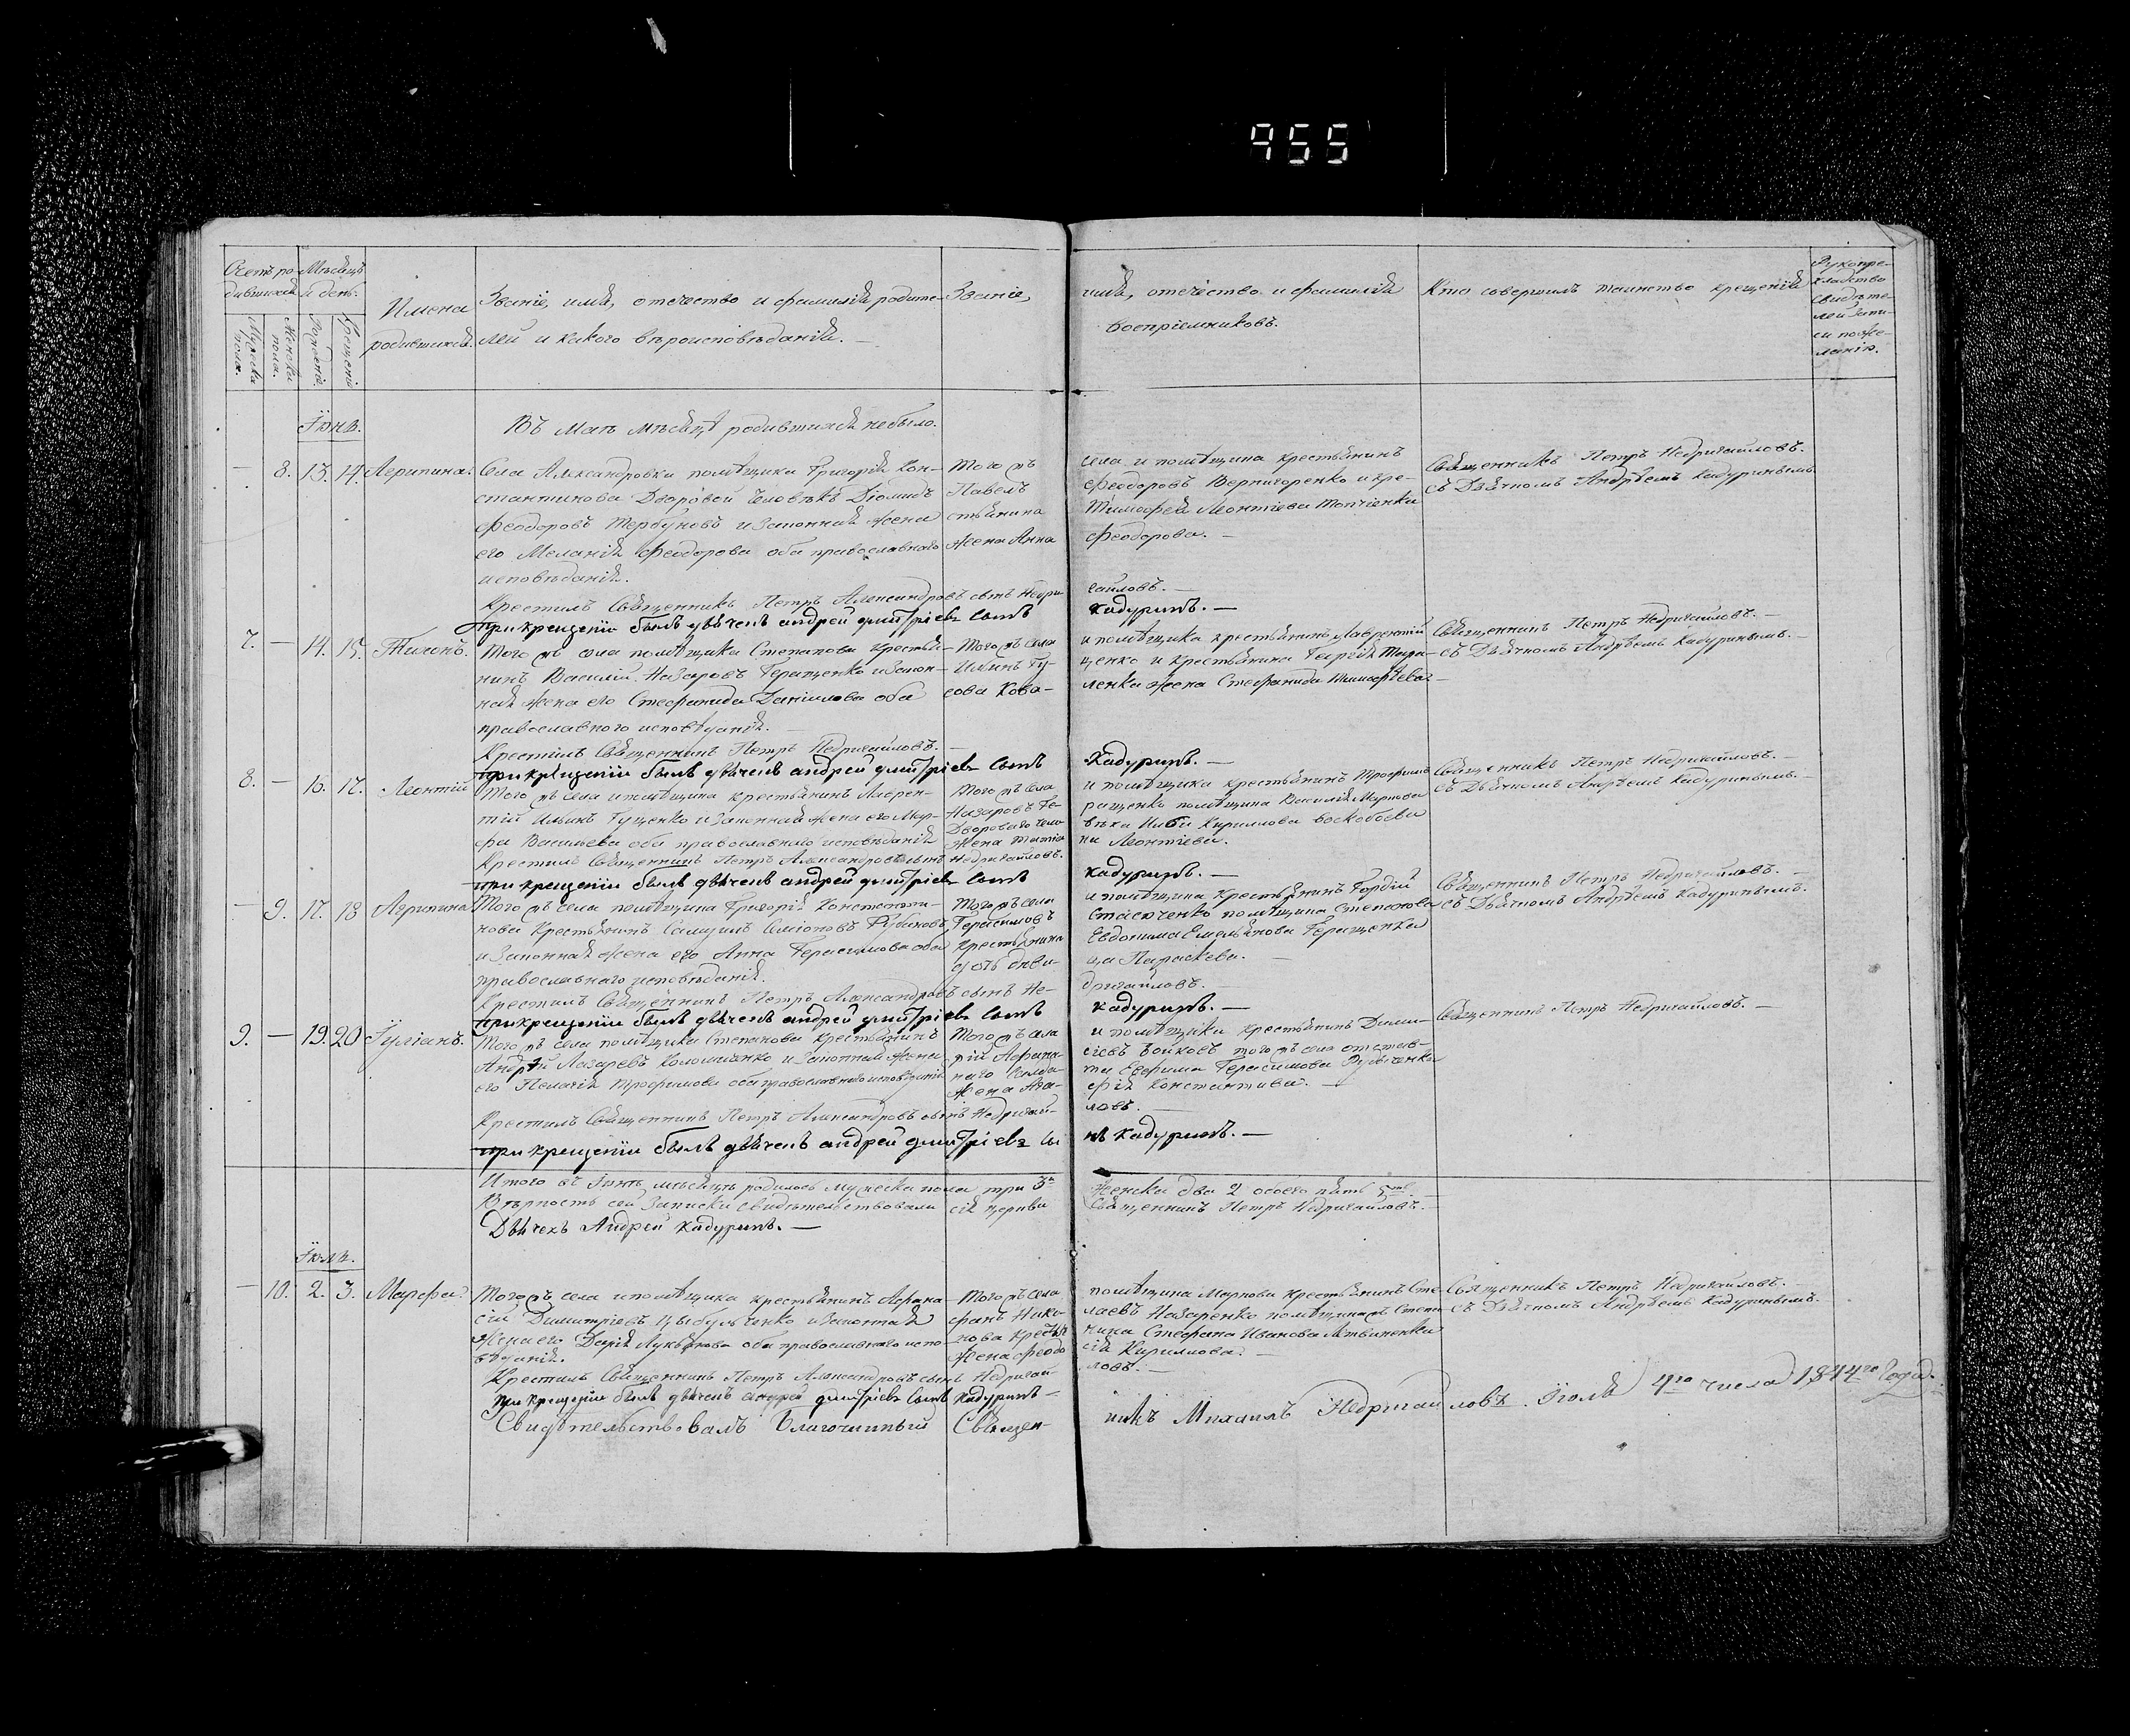 955
Счетъ ро- Мѣсяцъ
дившихся и день.
Мужеска пола.
Женска пола.
Рожденiе.
Крещенiе
Имена
родившихся.
Званiе, имя, отечество и фамилiя родите-
лей и какого вѣроисповѣданiя.
Званiе,
имя, отечество и фамилiя
воспрiемниковъ.
Кто совершилъ таинство крещенiя
Рукопри-
кладство
свидѣте-
лей запи-
си по же-
ланiю.
Въ Маѣ мѣсяцѣ родившихся небыло.
Iюнь.
8. 13. 14. Агрипина.
Села Александровки помѣщика Григорiя Кон-
стантинова Дворовой человѣкъ Дiомидъ
Феодоровъ Тербуновъ и законная жена
его Меланiя Феодорова оба православнаго
исповѣданiя.
Крестилъ Священникъ Петръ Александровъ сынъ Недри-
при крещенiи былъ дьячекъ андрей дмитрiевъ сынъ
Того жъ
Павелъ
стьянина
жена Анна
села и помѣщика крестьянинъ
Феодоровъ Вернигоренко и кре-
Тимофея Леонтiева Топчiенки
Феодорова.
гайловъ.
Кадуринъ.
Священникъ Петръ Недригайловъ.
съ Дьячкомъ Андрѣемъ Кадуринымъ
7. 14. 15. Тихонъ.
Того жъ села помѣщика Степанова крестья-
нинъ Василiй Назаровъ Геращенко и закон-
ная жена его Стефанида Данiилова оба
православного исповѣданiя.
Крестилъ Священникъ Петръ Недригайловъ.
при крещенiи былъ дьячекъ андрей дмитрiевъ сынъ
Того жъ села
Ильинъ Гу-
сова Кова-
и помѣщика крестьянинъ Лаврентiй
ценко и крестьянина Георгiя Тара-
ленка жена Стефанида Тимофѣева
Кадуринъ.
Священникъ Петръ Недригайловъ.
съ Дьячкомъ Андрѣемъ Кадуринымъ.
8. 16. 17. Леонтiй
Того жъ села и помѣщика крестьянинъ Лаврен-
тiй Ильинъ Гуценко и законная жена его Мар-
фа Васильева оба православнаго исповѣданiя
Крестилъ Священникъ Петръ Александровъ сынъ Недригайловъ.
при крещенiи былъ дьячекъ андрей дмитрiевъ сынъ
Того жъ села
Назаровъ Ге-
Двороваго чело-
жена
и помѣщика крестьянинъ Трофимъ
ращенко помѣщика Василiя Маркова
вѣка Кирилова
на Леонтiева.
Кадуринъ.
Священникъ Петръ Недригайловъ.
съ Дьячкомъ Андрѣемъ Кадуринымъ.
9. 17. 18 Агрипина
Того жъ села помѣщика Григорiя Константи-
нова Крестьянинъ Самуилъ Симоновъ Рубановъ
и законная жена его Анна Герасимова оба
православнаго исповѣданiя.
Крестилъ Священникъ Петръ Александровъ сынъ Не-
при крещенiи былъ дьячекъ андрей дмитрiевъ сынъ
Того жъ села
Герасимовъ
крестьянина
дочь дѣви-
и помѣщика крестьянинъ Гордiй
Стасюченко помѣщика Степанова
Евдокима Емельянова Геращенка
ца Параскева.
дригайловъ.
Кадуринъ.
Священникъ Петръ Недригайловъ.
съ Дьячкомъ Андрѣемъ Кадуринымъ.
9. 19. 20 Iулiанъ.
Того жъ села помѣщика Степанова крестьянинъ
Андрей Лазаревъ Коломченко и законная жена
его Пелагiя Трофимова оба православнаго исповѣданiя
Крестилъ Священникъ Петръ Александровъ сынъ Недригай-
при крещенiи былъ дьячекъ андрей дмитрiевъ сы
Того жъ села
рiй Афана-
наго Солда-
жена Ага-
и помѣщика крестьянинъ Дими-
сiевъ Бойковъ того жъ села отстав-
та Ефрима Герасимова
фiя Константинова.
ловъ.
нъ Кадуринъ.
Священникъ Петръ Недригайловъ.
Итого въ Iюнѣ мѣсяцѣ родилось мужеска пола три 3и
женска два 2 обоего пять 5ть.
Вѣрность сей Записки свидѣтельствовали сiя церкви
Священникъ Петръ Недригайловъ.
Дьячекъ Андрей Кадуринъ.
Iюль.
10. 2. 3. Марфа.
Того жъ села и помѣщика крестьянинъ Афана-
сiй Димитрiевъ Цыбульченко и законная
жена его Дарiя Лукьянова оба православнаго испо-
вѣданiя.
Крестилъ Священникъ Петръ Александровъ сынъ Недригай-
при крещенiи былъ дьячекъ андрей дмитрiевъ сынъ Кадуринъ
Того жъ села
фанъ Нико-
нова крестья
жена Феодо
помѣщика Маркова крестьянинъ Сте-
лаевъ Назаренко помѣщика Степа-
нина Стефана Иванова Литвиненка
сiя Кирилова.
ловъ.
Священникъ Петръ Недригайловъ.
съ Дьячкомъ Андрѣемъ Кадуринымъ.
Свидѣтельствовалъ Благочинный Священ-
никъ Михаилъ Недригайловъ. Iюля 4го числа 1844го Года.